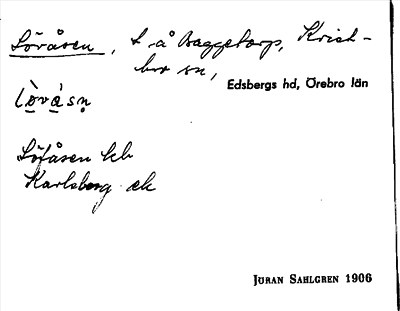 Lövåsen, t. å Baggetorp, Krist-
bro sn,
Edsbergs hd, Örebro län
lö̀vá̀sn̥
Löfåsen Gb
Karlsberg ek
JÖRAN SAHLGREN 1906